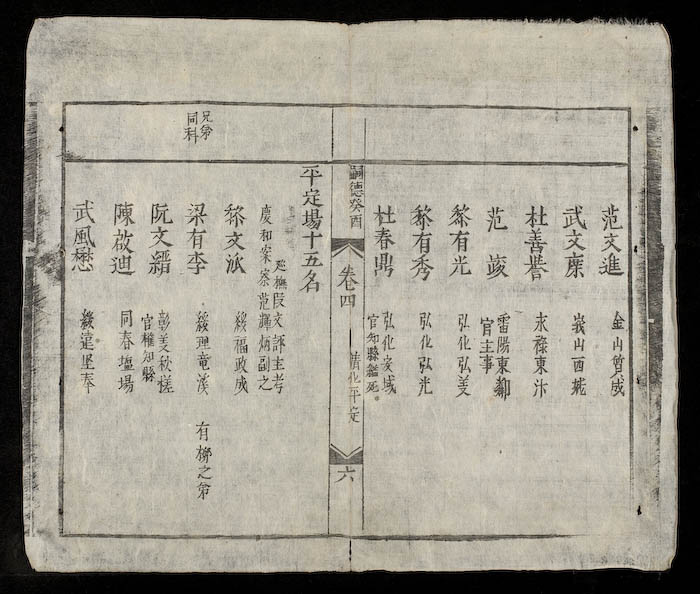 范文進 金山曾成
武文廩 峩山西𡶀
杜善譽 永祿東汴
范竣 雷陽東鄰
官主事
黎有光 弘化弘美
黎有秀 弘化弘光
杜春鼎 弘化安域
官知縣
嗣德癸酉
卷四
清化平定
六
平定場十五名
巡撫段文評主考
慶和案察范輝炳副之
黎文派 綏福政成
兄弟同科
梁有李 綏理竜溪 有榔之弟
阮文縉 彰美秋槎
官權知縣
陳啟迪 同春塩場
武風懋 綏遠里奉